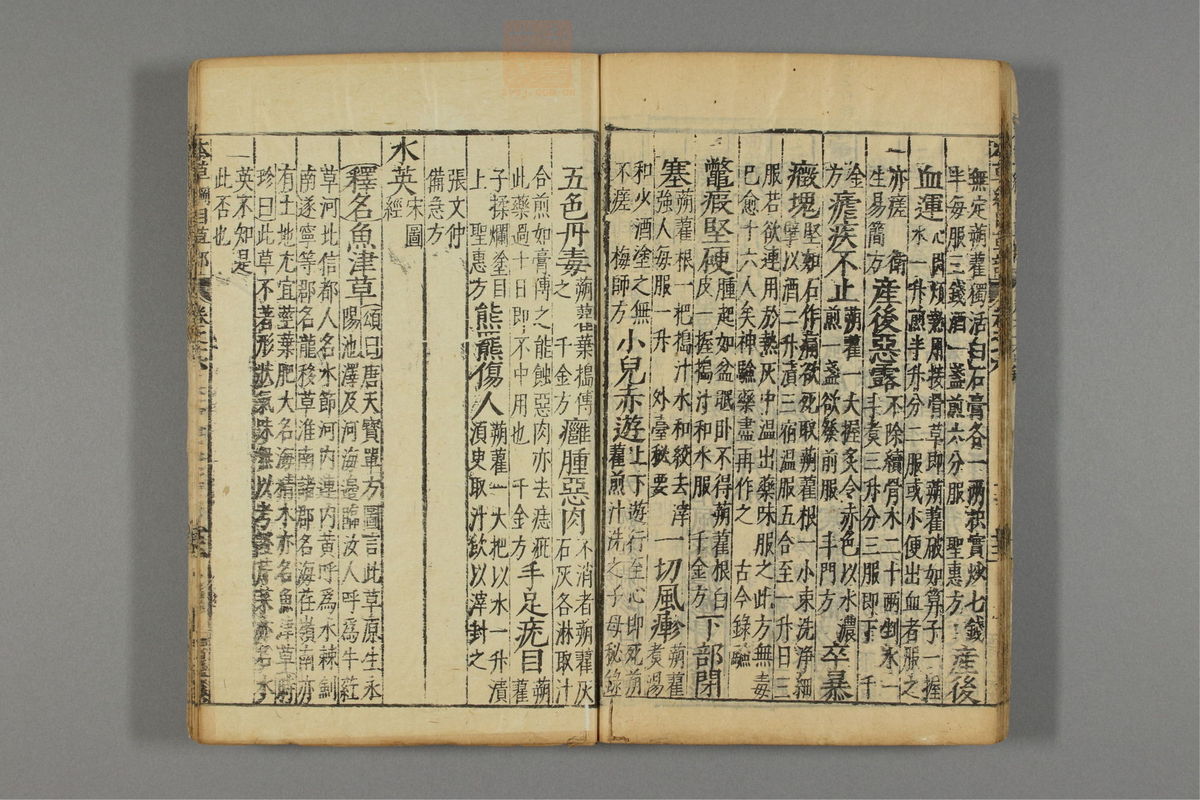 無定蒴藋獨活白石膏各一兩枳實炒七錢半每服三錢酒一盞煎六分服 聖惠方 產後
血運心悶煩熱用接骨草即蒴藋破如筭子一握水一升煎半升分二服或小便出血者服之
亦瘥 衛生易簡方 產後惡露不除續骨木二十兩剉水一斗煮三升分三服即下 千
金方 瘧疾不止蒴藋一大握炙令赤色以水濃煎一盞欲發前服 斗門方 卒暴
癥塊堅如石作痛欲死取蒴藋根一小束洗淨細擘以酒二升漬三宿溫服五合至一升日三
服若欲速用於熱灰中溫出藥味服之此方無毒已愈十六人矣神驗藥盡再作之 古今錄驗
鼈瘕堅硬腫起如盆眠臥不得蒴藋根白皮一握搗汁和水服 千金方 下部閉
塞蒴藋根一把搗汁水和絞去滓強人每服一升 外臺秘要 一切風㾦蒴藋煮湯
和火酒塗之無不瘥 梅師方 小兒赤遊上下遊行至心即死蒴藋煎汁洗之 子母秘錄
五色丹毒蒴藋葉搗傅之 千金方 癰腫惡肉不消者蒴藋灰石灰各淋取汁
合煎如膏傅之能蝕惡肉亦去痣疵此藥過十日即不中用也 千金方 手足疣目蒴藋
子揉爛塗目上 聖惠方 熊羆傷人蒴藋一大把以水一升漬須臾取汁飲以滓封之
張文仲備急方
水英宋圖經
釋名魚津草頌曰唐天寶單方圖言此草原生永陽池澤及河海邊臨汝人呼爲牛葒
草河北信都人名水節河內連內黃呼爲水棘劍南遂寧等郡名龍移草淮南諸郡名海荏嶺南亦
有土地尤宜莖葉肥大名海精木亦名魚津草時珍曰此草不著形狀氣味無以考證芹菜亦名水
英不知是一此否也
本草綱目草部